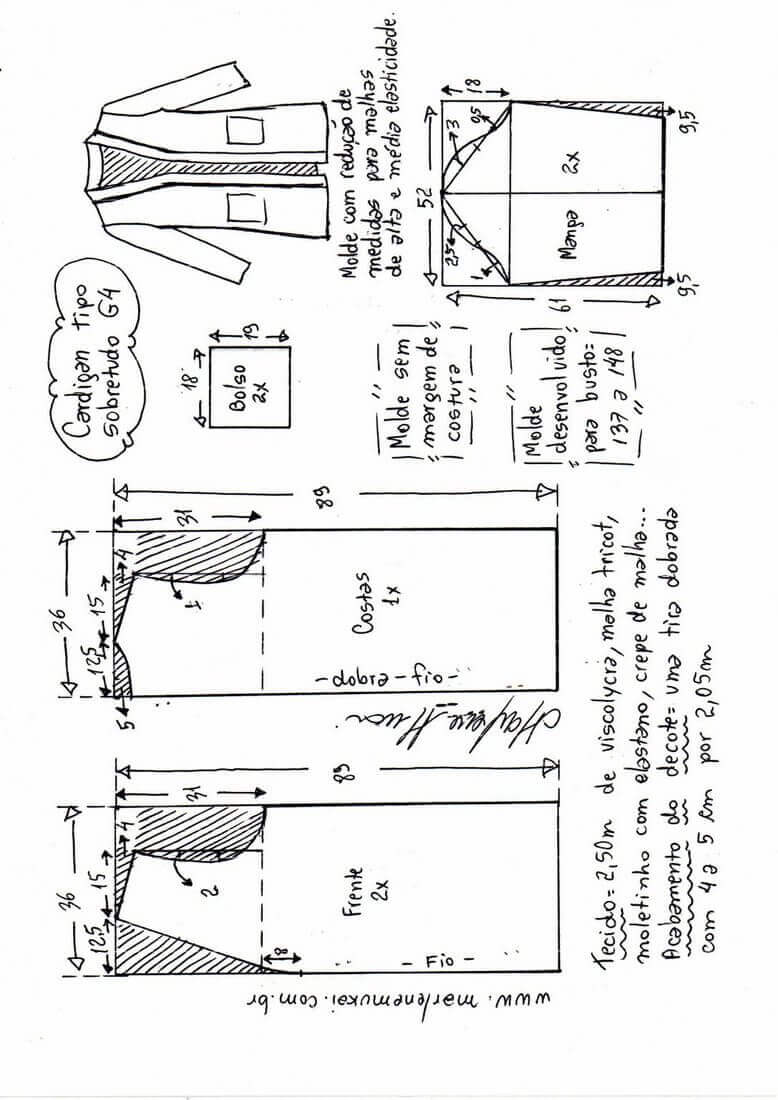 Cardigan tipo
sobretudo G4
Molde com redução de
medidas para malhas
de alta e média elasticidade.
18
19
Bolso
2x
Molde sem
margem de
costura
Molde
desenvolvido
para busto=
137 a 148
52
18
3
0,5
2,5
1
Manga
2x
61
9,5
9,5
36
12,5
15
4
5
1
31
89
Costas
1x
- dobra - fio -
Marlene Mukai
36
12,5
15
4
2
31
89
18
Frente
2x
- Fio -
www.marlenemukai.com.br
Tecido = 2,50m de viscolycra, malha tricot,
moletinho com elastano, crepe de malha...
Acabamento do decote = uma tira dobrada
com 4 a 5 cm por 2,05m